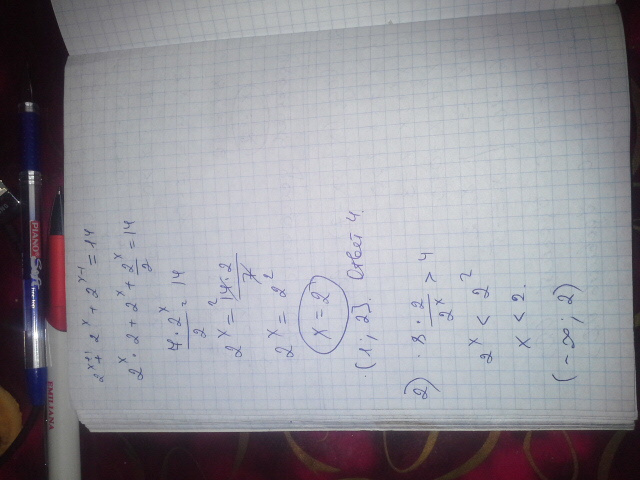 2^{x+1} + 2^x + 2^{x-1} = 14
2^x · 2 + 2^x + \frac{2^x}{2} = 14
\frac{7 · 2^x}{2} = 14
2^x = \frac{14 · 2}{7}
2^x = 2^2
x = 2
(1; 2]. Ответ 4.
2) 8 · \frac{2}{2^x} > 4
2^x < 2^2
x < 2.
(-∞; 2)
PIANO
Soft
EMILIANA